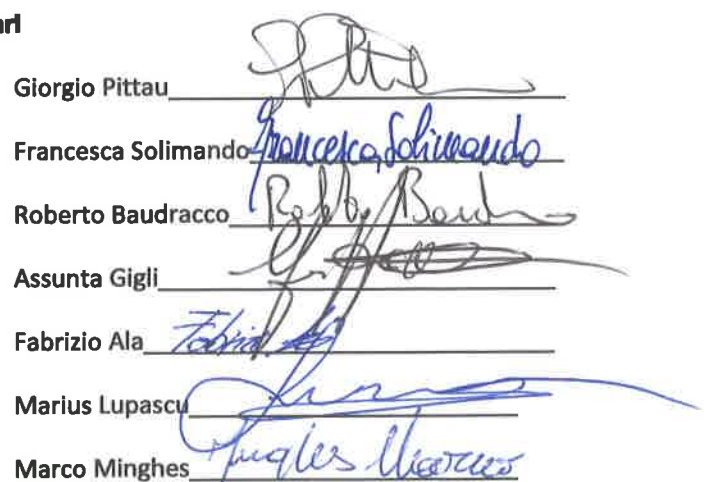 arl
Giorgio Pittau
Francesca Solimando Francesca Solimando
Roberto Baudracco
Assunta Gigli
Fabrizio Ala Fabrizio Ala
Marius Lupascu
Marco Minghes Minghes Marco